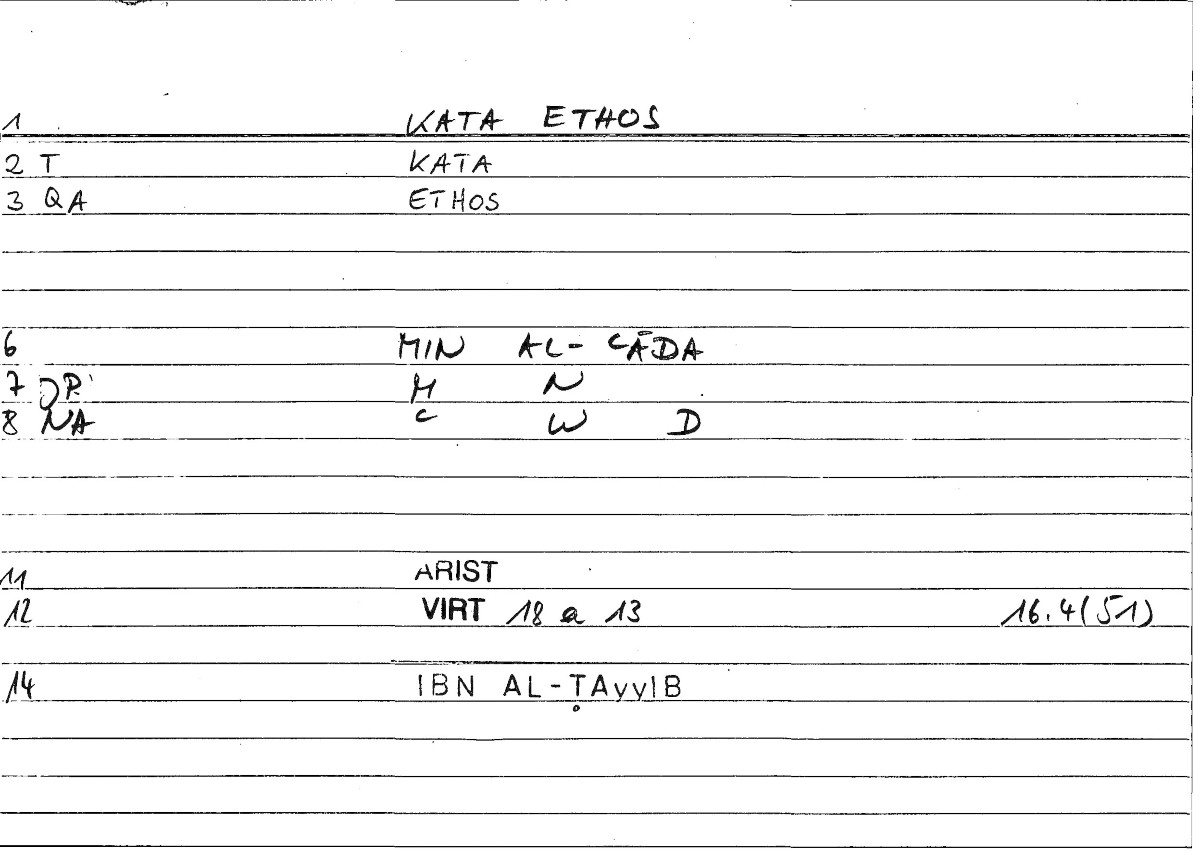 1 KATA ETHOS
2 T KATA
3 QA ETHOS
6 MIN AL- ʿĀDA
7 DR M N
8 NA ʿ W D
11 ARIST
12 VIRT 18 a 13 16.4(51)
14 IBN AL-ṬAyyIB